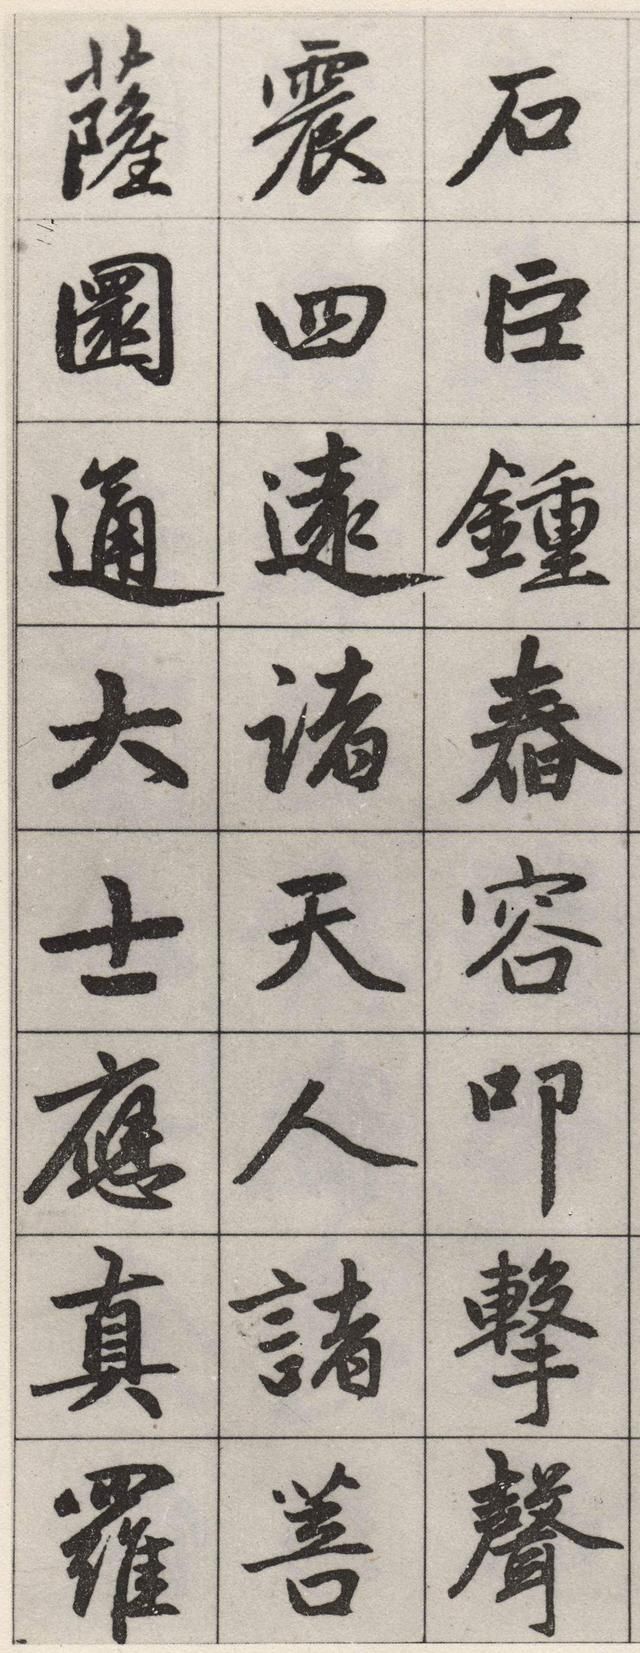 石巨鍾舂容叩擊聲
震四遠諸天人諸善
薩圓通大士應真羅